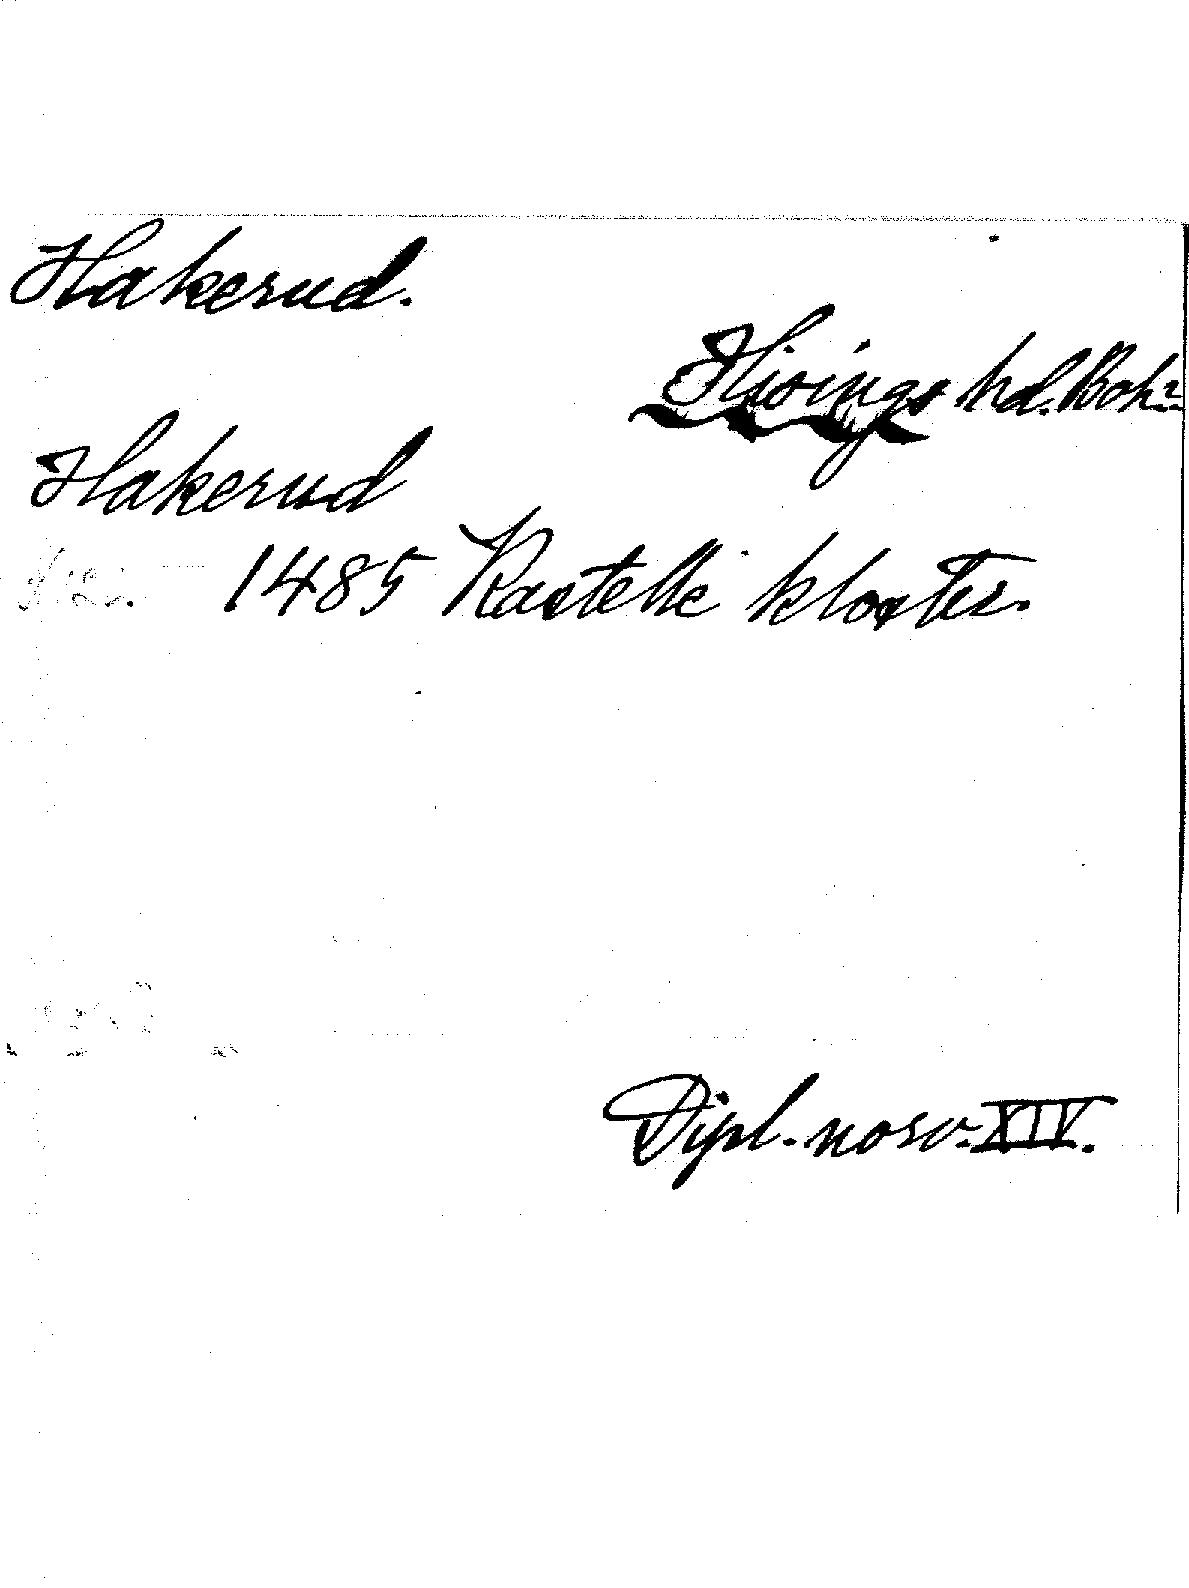 Hakerud.
Hisings hd. Boh.
Hakerud
1485 Kastelle kloster.
Dipl. norv. XIV.